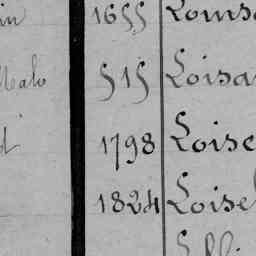 in 1655 Louis
Malo 515 Loisa
1798 Loise
1824 Loisel